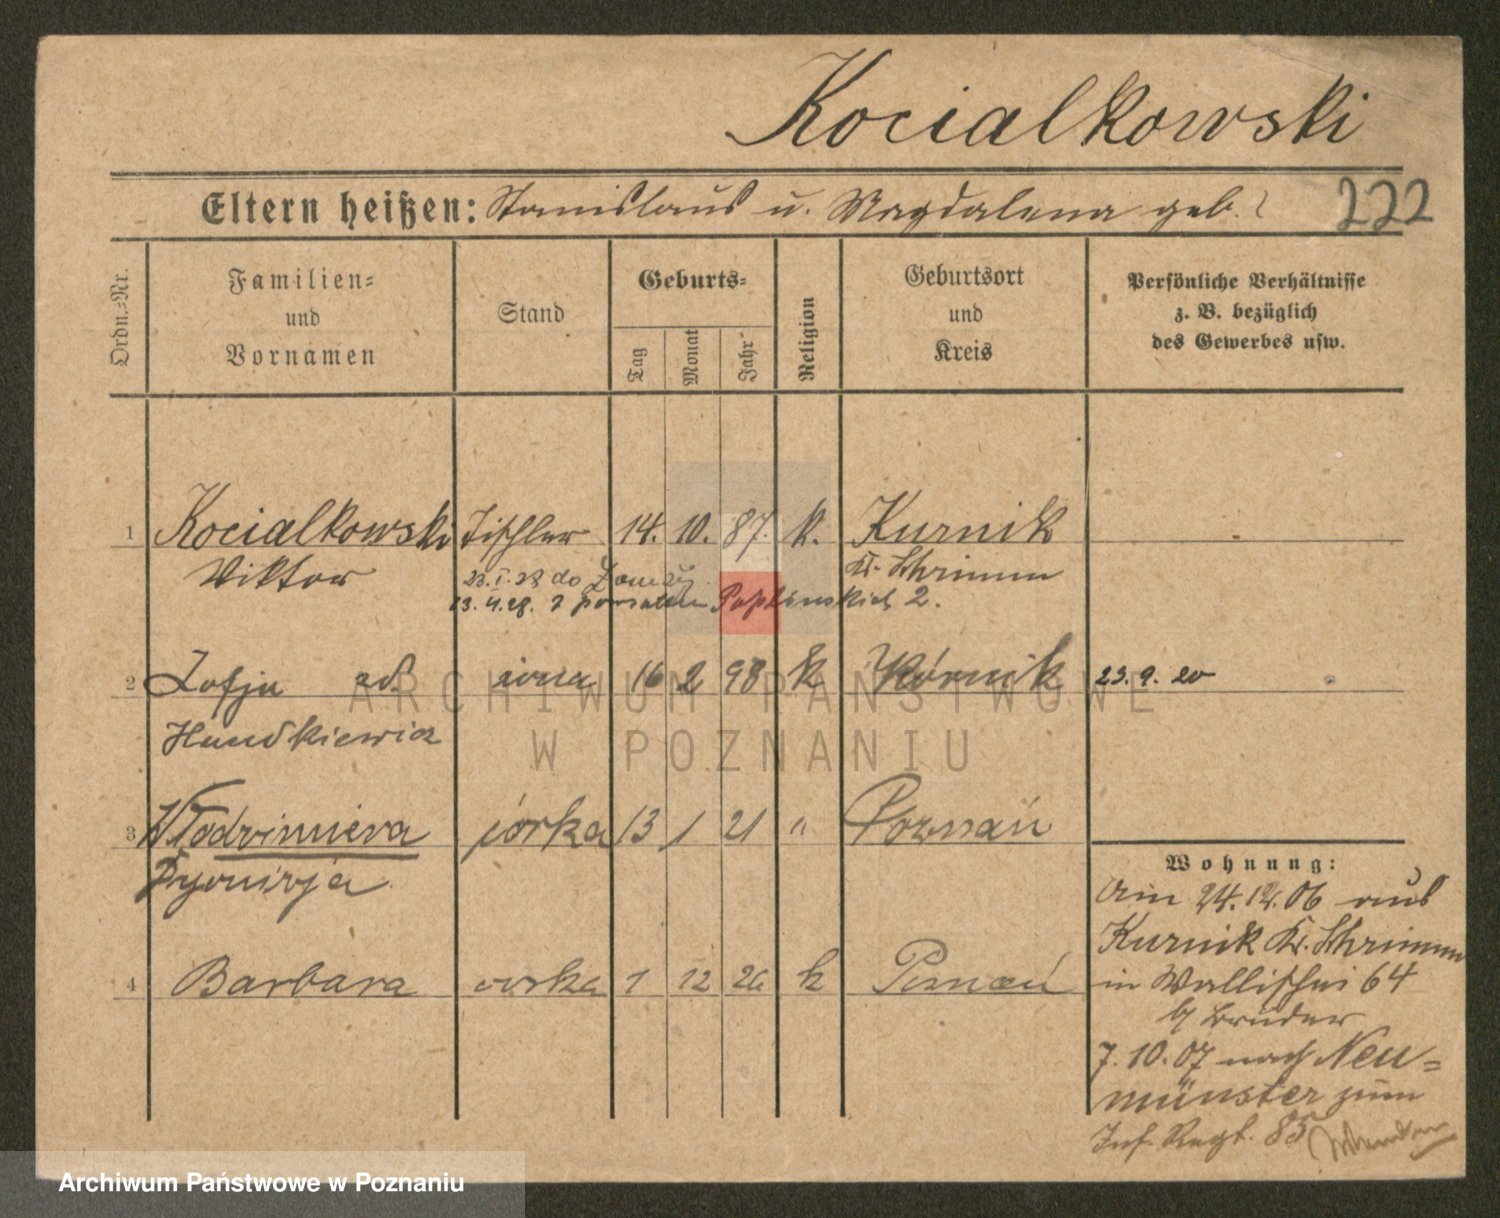 Kocialkowski
Eltern heißen: Stanislaus u. Magdalena geb. ?
222
Ordn.-Nr.
Familien-
und
Vornamen
Stand
Geburts-
Tag
Monat
Jahr
Religion
Geburtsort
und
Kreis
Persönliche Verhältnisse
z. B. bezüglich
des Gewerbes usw.
1 Kocialkowski Tischler 14. 10. 87. k. Kurnik
Viktor Kr. Schrimm
23. I. 28 do Łomży
13. 4. 28. z powrotem Poplinskich 2.
2 Zofja żona 16 2 98 k Kórnik 23. 9. 20
3 Włodzimiera córka 13 1 21 " Poznań
Dyonizja
4 Barbara córka 1 12 26 k Poznań
Wohnung:
Am 24.12.06 aus
Kurnik Kr. Schrimm
in Wallischei 64
b/ Bruder
7.10.07 nach Neu-
münster zum
Inf. Regt. 85
ARCHIWUM PAŃSTWOWE
W POZNANIU
Archiwum Państwowe w Poznaniu